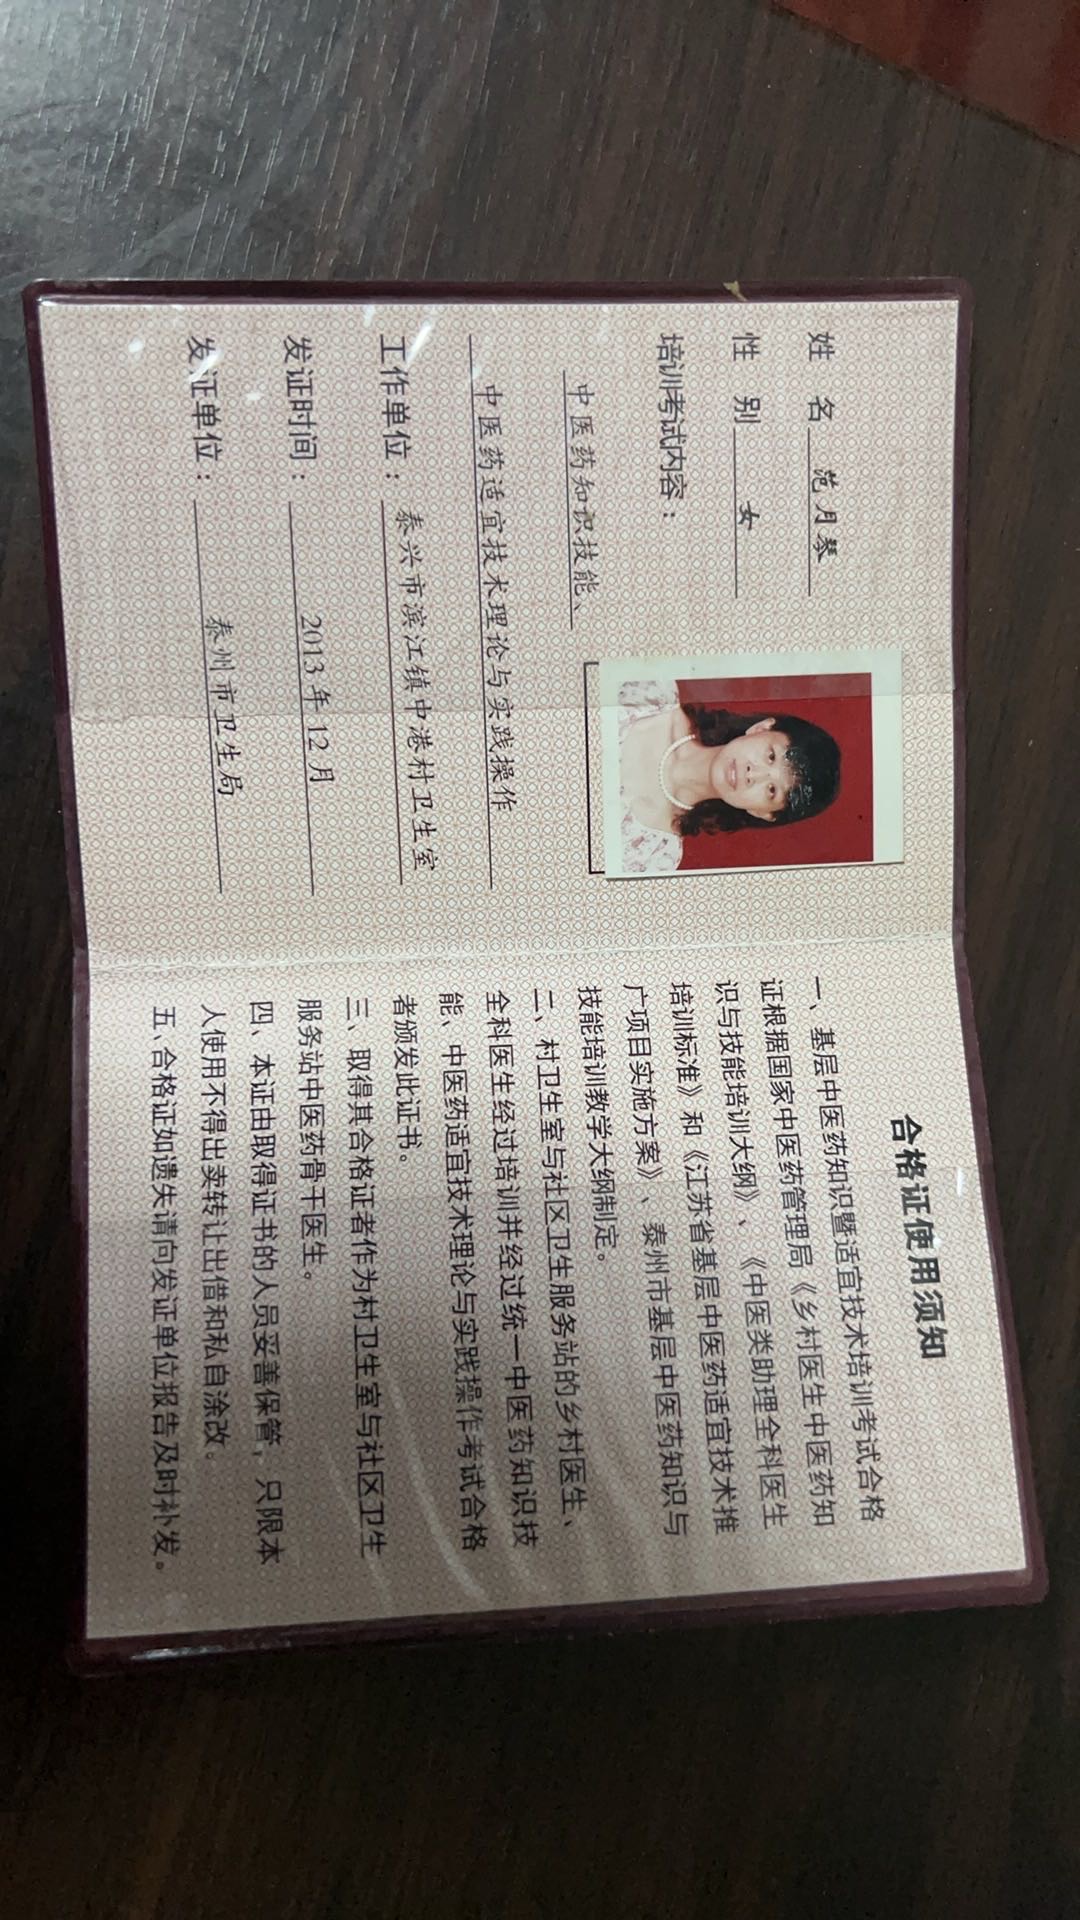 姓 名 范月琴
性 别 女
培训考试内容：
中医药知识技能、
中医药适宜技术理论与实践操作
工作单位： 泰兴市滨江镇中港村卫生室
发证时间： 2013年12月
发证单位： 泰州市卫生局
合格证使用须知
一、基层中医药知识暨适宜技术培训考试合格
证根据国家中医药管理局《乡村医生中医药知
识与技能培训大纲》、《中医类助理全科医生
培训标准》和《江苏省基层中医药适宜技术推
广项目实施方案》、泰州市基层中医药知识与
技能培训教学大纲制定。
二、村卫生室与社区卫生服务站的乡村医生、
全科医生经过培训并经过统一中医药知识技
能、中医药适宜技术理论与实践操作考试合格
者颁发此证书。
三、取得其合格证者作为村卫生室与社区卫生
服务站中医药骨干医生。
四、本证由取得证书的人员妥善保管，只限本
人使用不得出卖转让出借和私自涂改。
五、合格证如遗失请向发证单位报告及时补发。